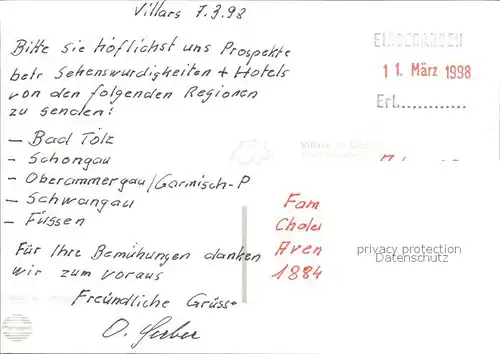 Villars 7.3.98
Bitte sie höflichst uns Prospekte
betr Sehenswürdigkeiten + Hotels
von den folgenden Regionen
zu senden:
– Bad Tölz
– Schongau
– Oberammergau/Garmisch-P
– Schwangau
– Füssen
Für Ihre Bemühungen danken
wir zum voraus
Freundliche Grüsse
O. Gerber
EINGEGANGEN
11. März 1998
Erl.............
Villars
Fam
Chalet
Aven
1884
privacy protection
Datenschutz